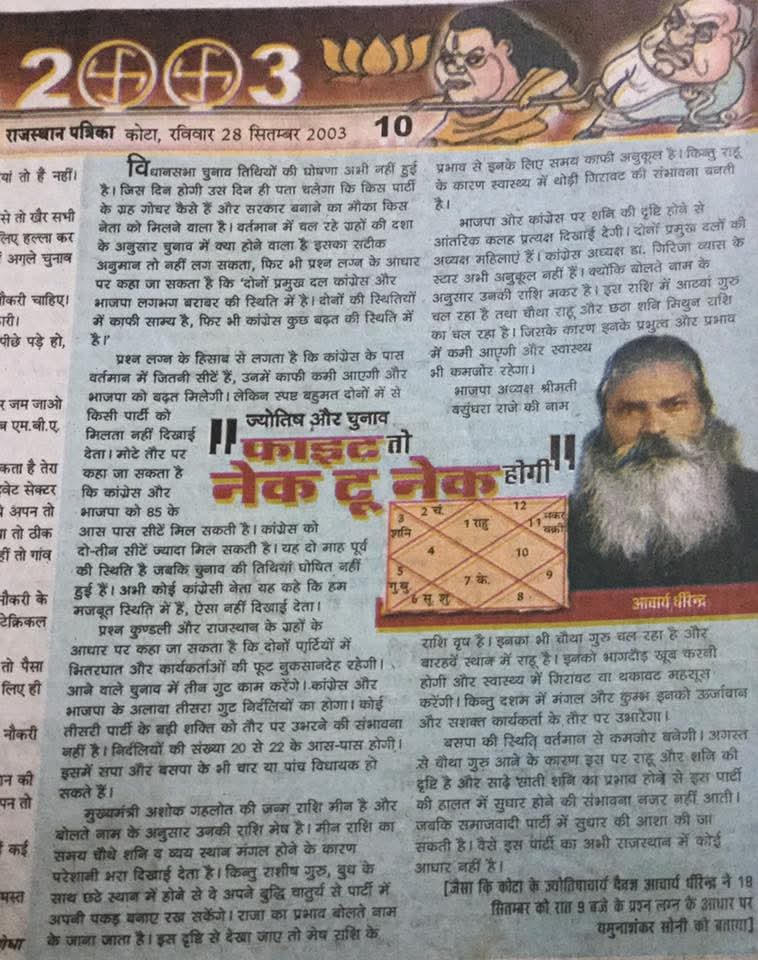 2003
राजस्थान पत्रिका कोटा, रविवार 28 सितम्बर 2003 10
यां तो है नहीं।
से तो खैर सभी
लिए हल्ला कर
अगले चुनाव
नौकरी चाहिए।
पीछे पड़े हो,
र जम जाओ
ब एम.बी.ए.
कता है तेरा
इवेट सेक्टर
अपन तो
या तो ठीक
हीं तो गांव
नौकरी के
टेक्निकल
तो पैसा
लिए ही
नौकरी
न की
पन तो
कई
मस्त
विधानसभा चुनाव तिथियों की घोषणा अभी नहीं हुई
है। जिस दिन होगी उस दिन ही पता चलेगा कि किस पार्टी
के ग्रह गोचर कैसे हैं और सरकार बनाने का मौका किस
नेता को मिलने वाला है। वर्तमान में चल रहे ग्रहों की दशा
के अनुसार चुनाव में क्या होने वाला है इसका सटीक
अनुमान तो नहीं लग सकता, फिर भी प्रश्न लग्न के आधार
पर कहा जा सकता है कि 'दोनों प्रमुख दल कांग्रेस और
भाजपा लगभग बराबर की स्थिति में है। दोनों की स्थितियों
में काफी साम्य है, फिर भी कांग्रेस कुछ बढ़त की स्थिति में
है।'
प्रश्न लग्न के हिसाब से लगता है कि कांग्रेस के पास
वर्तमान में जितनी सीटें हैं, उनमें काफी कमी आएगी और
भाजपा को बढ़त मिलेगी। लेकिन स्पष्ट बहुमत दोनों में से
किसी पार्टी को
मिलता नहीं दिखाई
देता। मोटे तौर पर
कहा जा सकता है
कि कांग्रेस और
भाजपा को 85 के
आस पास सीटें मिल सकती है। कांग्रेस को
दो-तीन सीटें ज्यादा मिल सकती है। यह दो माह पूर्व
की स्थिति है जबकि चुनाव की तिथियां घोषित नहीं
हुई हैं। अभी कोई कांग्रेसी नेता यह कहे कि हम
मजबूत स्थिति में हैं, ऐसा नहीं दिखाई देता।
प्रश्न कुण्डली और राजस्थान के ग्रहों के
आधार पर कहा जा सकता है कि दोनों पार्टियों में
भितरघात और कार्यकर्ताओं की फूट नुकसानदेह रहेगी।
आने वाले चुनाव में तीन गुट काम करेंगे। कांग्रेस और
भाजपा के अलावा तीसरा गुट निर्दलियों का होगा। कोई
तीसरी पार्टी के बड़ी शक्ति को तौर पर उभरने की संभावना
नहीं है। निर्दलियों की संख्या 20 से 22 के आस-पास होगी।
इसमें सपा और बसपा के भी चार या पांच विधायक हो
सकते हैं।
मुख्यमंत्री अशोक गहलोत की जन्म राशि मीन है और
बोलते नाम के अनुसार उनकी राशि मेष है। मीन राशि का
समय चौथे शनि व व्यय स्थान मंगल होने के कारण
परेशानी भरा दिखाई देता है। किन्तु राशीष गुरु, बुध के
साथ छठे स्थान में होने से वे अपने बुद्धि चातुर्य से पार्टी में
अपनी पकड़ बनाए रख सकेंगे। राजा का प्रभाव बोलते नाम
के जाना जाता है। इस दृष्टि से देखा जाए तो मेष राशि के
प्रभाव से इनके लिए समय काफी अनुकूल है। किन्तु राहू
के कारण स्वास्थ्य में थोड़ी गिरावट की संभावना बनती
है।
भाजपा और कांग्रेस पर शनि की दृष्टि होने से
आंतरिक कलह प्रत्यक्ष दिखाई देगी। दोनों प्रमुख दलों की
अध्यक्ष महिलाएं हैं। कांग्रेस अध्यक्ष डा. गिरिजा व्यास के
स्टार अभी अनुकूल नहीं हैं। क्योंकि बोलते नाम के
अनुसार उनकी राशि मकर है। इस राशि में आटवां गुरु
चल रहा है तथा चौथा राहू और छटा शनि मिथुन राशि
का चल रहा है। जिसके कारण इनके प्रभुत्व और प्रभाव
में कमी आएगी और स्वास्थ्य
भी कमजोर रहेगा।
भाजपा अध्यक्ष श्रीमती
वसुंधरा राजे की नाम
ज्योतिष और चुनाव
"फाइट तो
नेक टू नेक होगी"
3 शनि
2 चं.
1 राहु
12
11 मकर वक्री
4
10
5 गु.बु
7 के.
9
6 सू.शु
8
आचार्य धीरेन्द्र
राशि वृष है। इनका भी चौथा गुरु चल रहा है और
बारहवें स्थान में राहू है। इनको भागदौड़ खूब करनी
होगी और स्वास्थ्य में गिरावट या थकावट महसूस
करेंगी। किन्तु दशम में मंगल और कुम्भ इनको ऊर्जावान
और सशक्त कार्यकर्ता के तौर पर उभारेगा।
बसपा की स्थिति वर्तमान से कमजोर बनेगी। अगस्त
से चौथा गुरु आने के कारण इस पर राहू और शनि की
दृष्टि है और साढ़े साती शनि का प्रभाव होने से इस पार्टी
की हालत में सुधार होने की संभावना नजर नहीं आती।
जबकि समाजवादी पार्टी में सुधार की आशा की जा
सकती है। वैसे इस पार्टी का अभी राजस्थान में कोई
आधार नहीं है।
[जैसा कि कोटा के ज्योतिषाचार्य दैवज्ञ आचार्य धीरेन्द्र ने 18
सितम्बर को रात 9 बजे के प्रश्न लग्न के आधार पर
यमुनाशंकर सोनी को बताया]